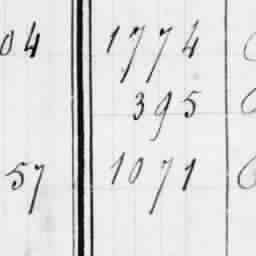 04 1774
395
57 1071